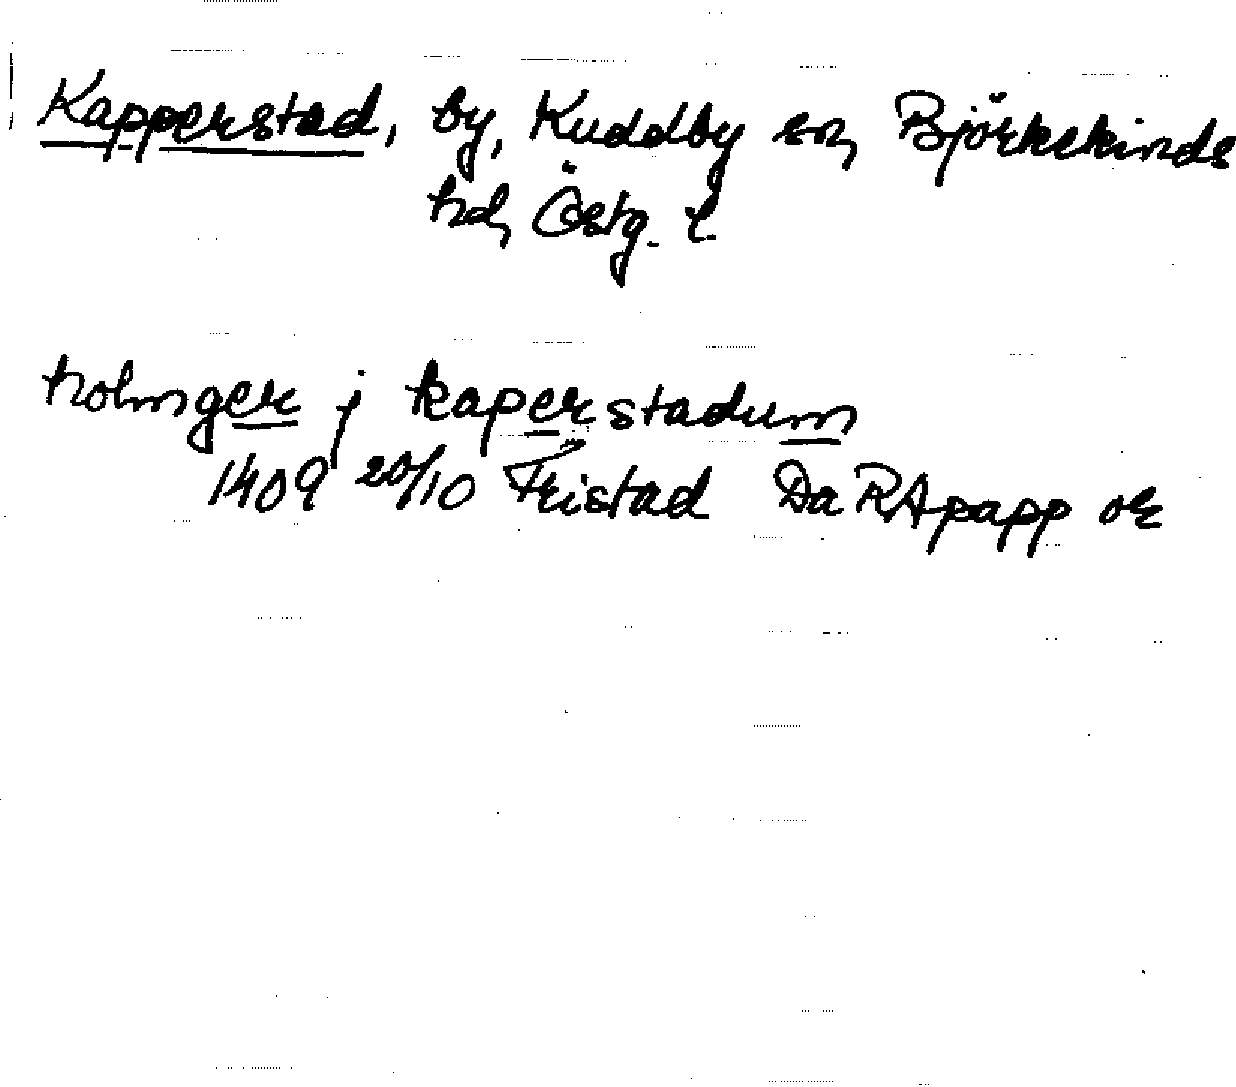 Kapperstad, by, Kuddby sn, Björkekinds
hd, Östg. l.
holmger j kaperstadum
1409 20/10 Fristad Da RApapp or